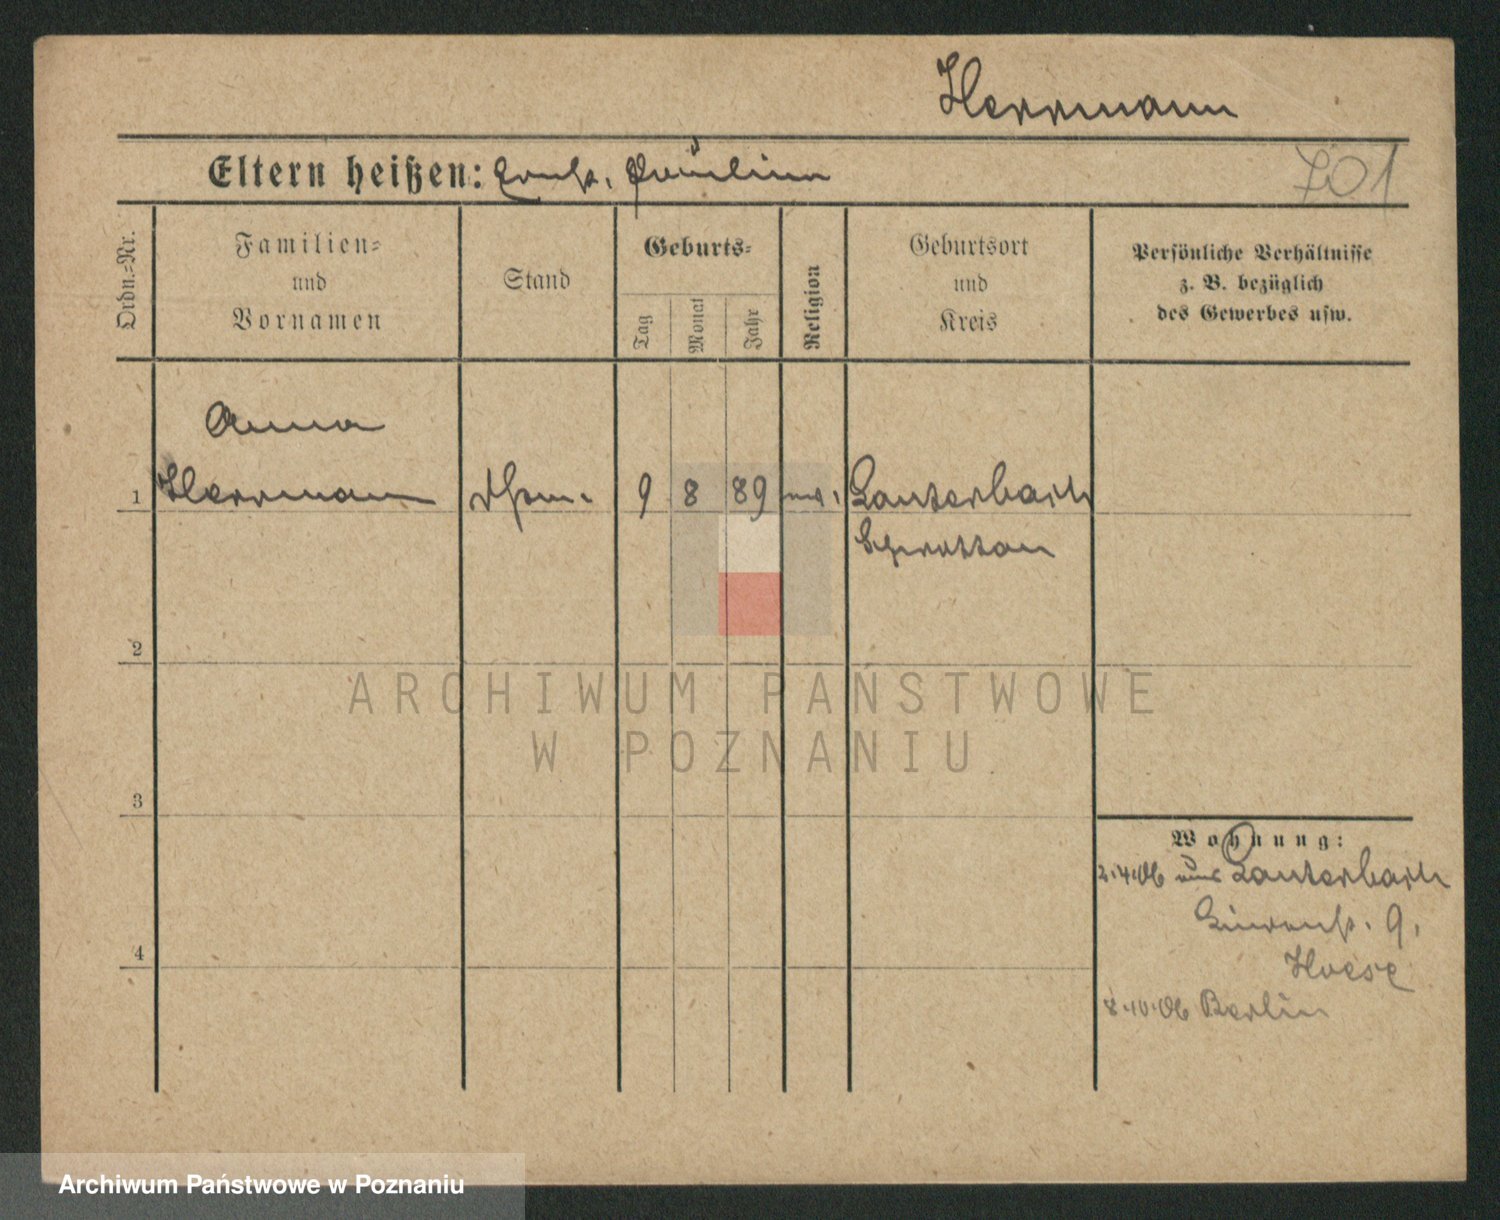 Herrmann
Eltern heißen: Ernst. Paulina
701
Ordn.=Nr.
Familien=
und
Vornamen
Stand
Geburts=
Tag
Monat
Jahr
Religion
Geburtsort
und
Kreis
Persönliche Verhältnisse
z. B. bezüglich
des Gewerbes usw.
Anna
1 Herrmann 9 8 89 Lauterbach
Sprottau
2
3
4
ARCHIWUM PAŃSTWOWE
W POZNANIU
Wohnung:
2.4.06 aus Lauterbach
9.
8.10.06 Berlin
Archiwum Państwowe w Poznaniu